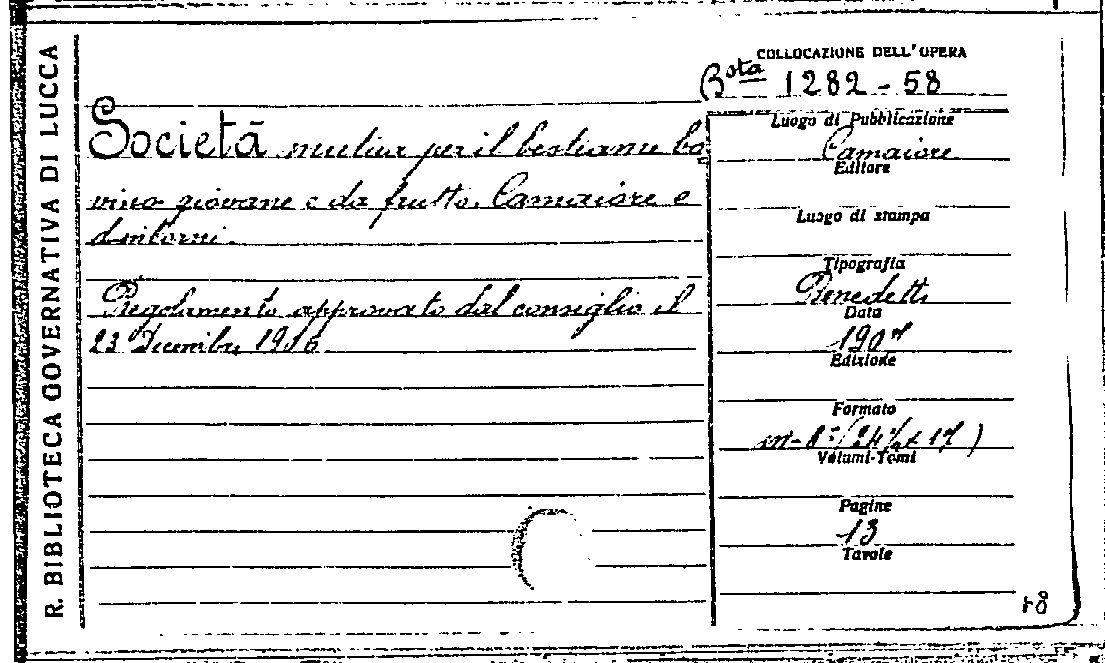 R. BIBLIOTECA GOVERNATIVA DI LUCCA
COLLOCAZIONE DELL'OPERA
Bsta 1282 - 58
Società mutua per il bestiame bo
vino giovane e da frutto. Camaiore e
dintorni.
Regolamento approvato dal consiglio il
23 Dicembre 1906
Luogo di Pubblicazione
Camaiore
Editore
Luogo di stampa
Tipografia
Benedetti
Data
1907
Edizione
Formato
in-8° (24½ x 17)
Volumi-Tomi
Pagine
13
Tavole